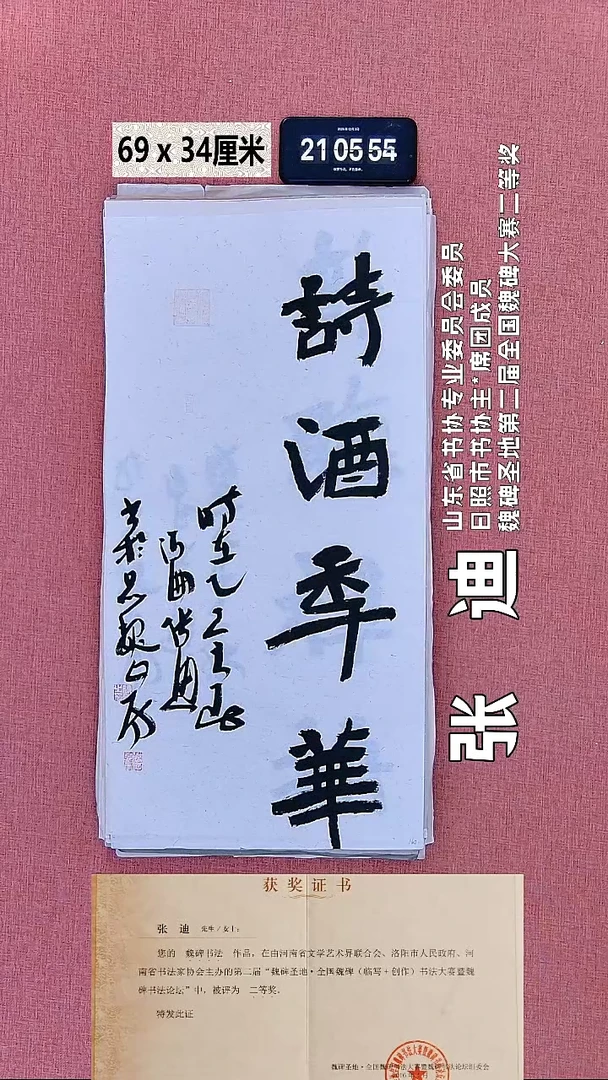 69 x 34厘米
21 05 54
詩酒秊華
时在乙巳
张迪
书於思魏山房
山东省书协专业委员会委员
日照市书协主*席团成员
魏碑圣地第二届全国魏碑大赛二等奖
张 迪
获奖证书
张 迪 先生/女士:
您的 魏碑书法 作品，在由河南省文学艺术界联合会、洛阳市人民政府、河
南省书法家协会主办的第二届“魏碑圣地·全国魏碑（临写+创作）书法大赛暨魏
碑书法论坛”中，被评为 二等奖。
特发此证
魏碑圣地·全国魏碑书法大赛暨魏碑书法论坛组委会